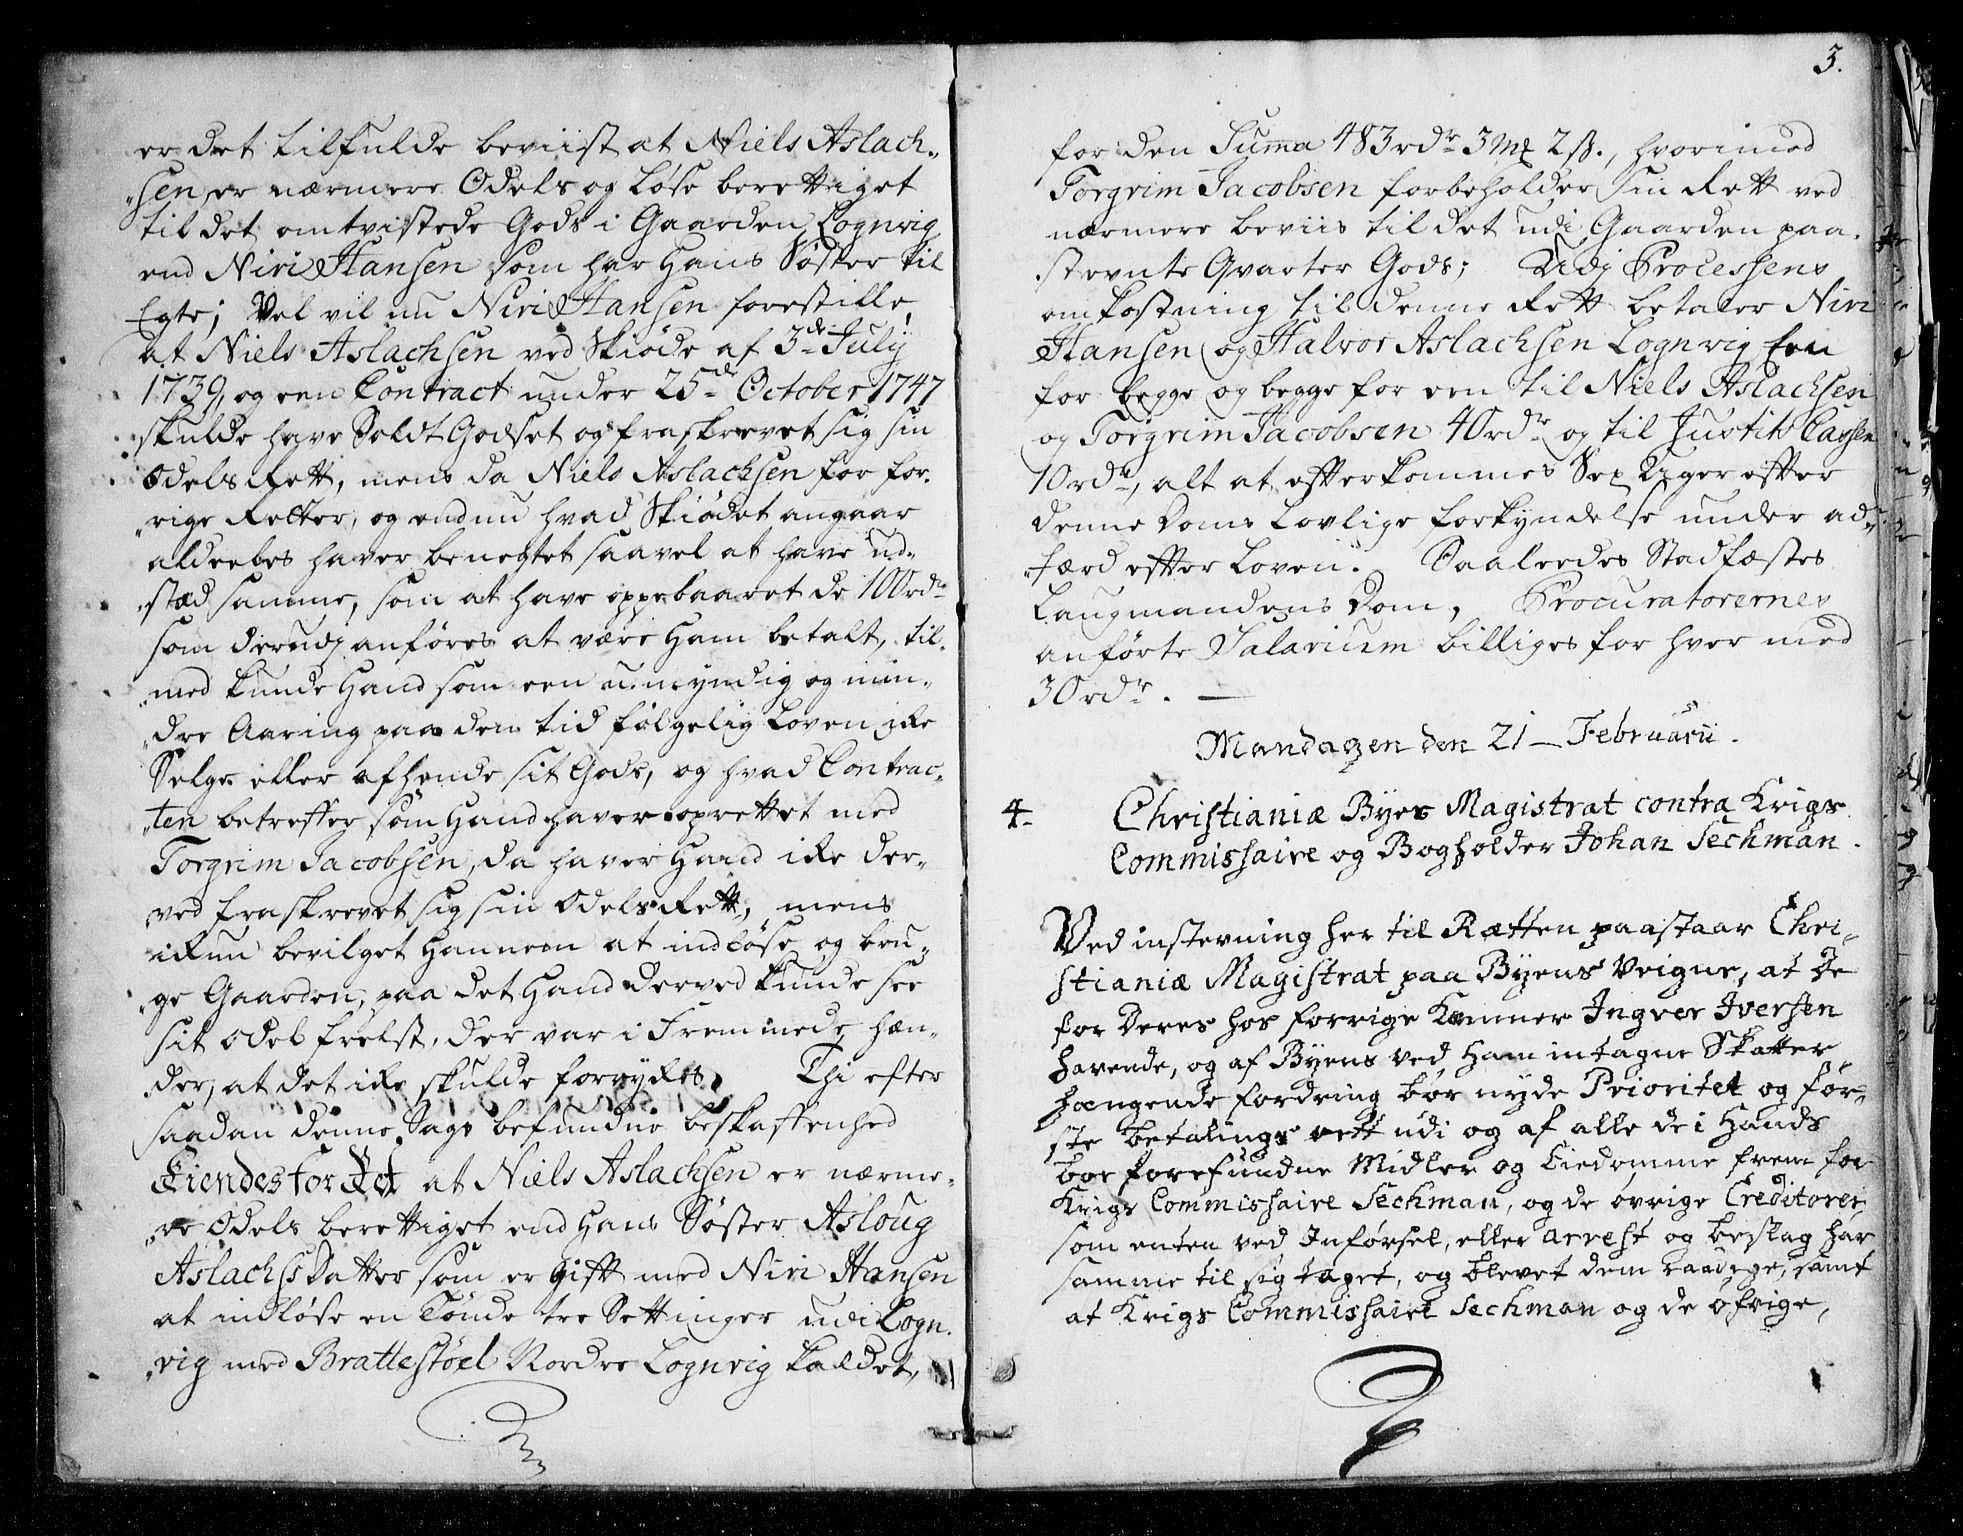 er det tilfulde beviist at Niels Aslach-
„sen, er nærmere Odels og Løse berettiget
til det omtvistede Gods i Gaarden Lognvig
end Niri Hansen som har Hans Søster til
Egte; Vel vil nu Niri Hansen forestille,
at Niels Aslachsen ved Skiøde af 3de July
1739, og een Contract under 25de October 1747
skulde have Soldt Godset og fraskrevet sig sin
Odels Rett, mens da Niels Aslachsen for for-
„rige Retter, og endnu hvad Skiødet angaar
aldeeles haver benegtet saavel at have ud-
„stæd samme, som at have oppebaaret de 100rdr
som derudj anføres at være Ham betalt, til-
„med kunde Hand som een u-myndig og min-
„dre Aaring paa den tid følgelig Loven ike
Selge eller afhende sit Gods, og hvad Contrac-
„ten betreffer som Hand haver oprettet med
Torgrim Jacobsen, da haver Hand ike der-
ved fraskrevet sig sin Odels Rett, mens
ikun bevilget Hannem at indløse og bru-
„ge Gaarden, paa det Hand derved kunde see
sit Odel frelst, der var i Fremmede hæn-
der, at det ike skulde forrykes, Thi efter
saadan denne Sags befundne beskaffenhed
Kiendes for Ret at Niels Aslachsen er nærme-
„re Odels berettiget end Hans Søster Asloug
Aslachs Datter som er Gift med Niri Hansen
at indløse en Tønde tre Settinger udi Logn-
„vig med Brattestøel Nordre Lognvig kaldet,
3.
for den Summa 483rdr 3 mk 2 ß., hvorimod
Torgrim Jacobsen forbeholder sin Rett ved
nærmere beviis til det udi Gaarden paa-
stevnte Qvarter Gods; Udj Processens
omkostning til denne Rett betaler Niri
Hansen og Halvor Aslachsen Lognvig Een
for begge og begge for een til Niels Aslachsen
og Torgrim Jacobsen 40rdr og til Justits Cassen
10rdr, alt at efterkommes Sex Uger efter
denne Doms Lovlige forkyndelse under ad-
„færd efter Loven. Saaleedes Stadfæstes
Laugmandens Dom, Procuratorernes
anførte Salarium billiges for hver med
30rdr. —
Mandagen den 21 – Februarii.
4. Christianiæ Byes Magistrat contra Krigs
Commissaire og Bogholder Johan Sechman.
Ved instevning her til Rætten paastaar Chri-
stianiæ Magistrat paa Byens Veigne, at de
for Deres hos forrige Kæmner Ingver Iversen
havende, og af Byens ved Ham intagne Skatter
hængende fordring bør nyde Prioritet og før-
ste betalings rett udi og af alle de i Hands
boe forefundne Midler og Eiedomme frem for
Krigs Commissaire Sechman, og de øvrige Creditorer
som enten ved Inførsel, eller Arrest og beslag har
samme til sig taget, og blevet dem raadige, samt
at Krigs Commissaire Sechman og de øfrige,